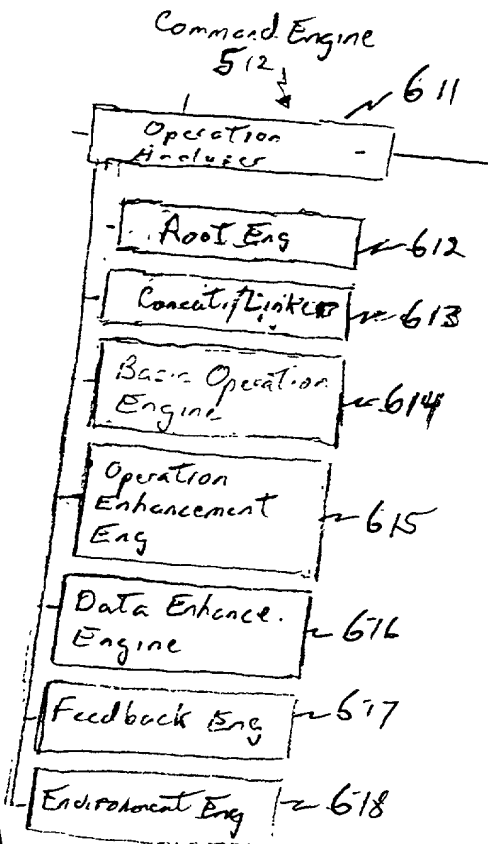 Command Engine
512
611
Operation
Analyzer
Root Eng
612
Concat./Linker
613
Basic Operation
Engine
614
Operation
Enhancement
Eng
615
Data Enhance.
Engine
616
Feedback Eng
617
Environment Eng
618